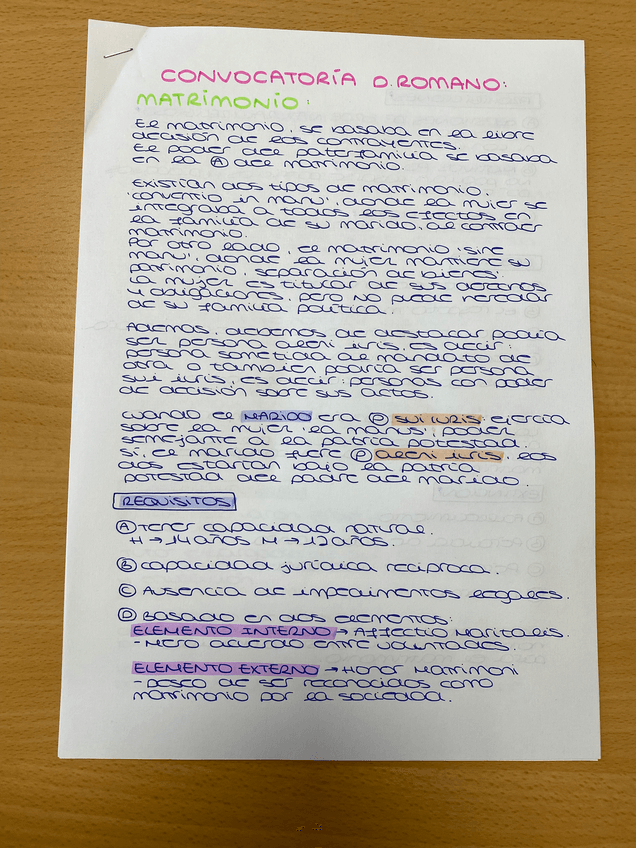 CONVOCATORÍA D.ROMANO:
MATRIMONIO:
El matrimonio, se basaba en la libre
decisión de los contrayentes.
El poder del paterfamilia se basaba
en la Ⓐ del matrimonio.
Existían dos tipos de matrimonio,
'conventio in manu', donde la mujer se
integraba a todos los efectos en
la familia de su marido, al contraer
matrimonio.
Por otro lado, el matrimonio 'sine
manu', donde la mujer mantiene su
patrimonio, separación de bienes.
La mujer es titular de sus derechos
y obligaciones, pero no puede heredar
de su familia política.
Además, debemos de destacar podía
ser persona alieni iuris, es decir:
persona sometida al mandato de
otra o también podría ser persona
sui iuris, es decir: personas con poder
de decisión sobre sus actos.
Cuando el MARIDO era Ⓟ sui iuris, ejercía
sobre la mujer 'la manus', poder
semejante a la patria potestad.
Si, el marido fuere Ⓟ alieni iuris, los
dos estarían bajo la patria
potestad del padre del marido.
REQUISITOS
Ⓐ Tener capacidad natural.
H → 14 años M → 12 años.
Ⓑ capacidad jurídica recíproca.
Ⓒ Ausencia de impedimentos legales.
Ⓓ Basado en dos elementos:
ELEMENTO INTERNO → Affectio Maritalis.
- Mero acuerdo entre voluntades.
ELEMENTO EXTERNO → Honor Matrimoni
- Deseo de ser reconocidos como
matrimonio por la sociedad.